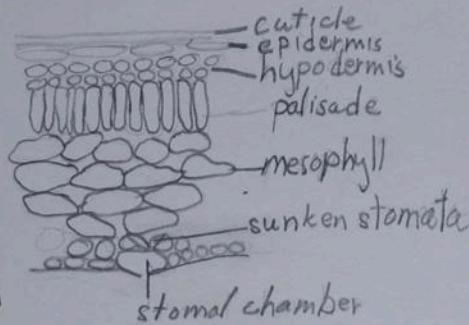 cuticle
epidermis
hypodermis
palisade
mesophyll
sunken stomata
stomal chamber